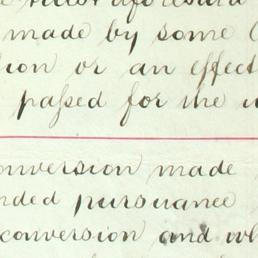 made by some
ion or an effect
passed for the
onversion made
nded pursuance
conversion and wh